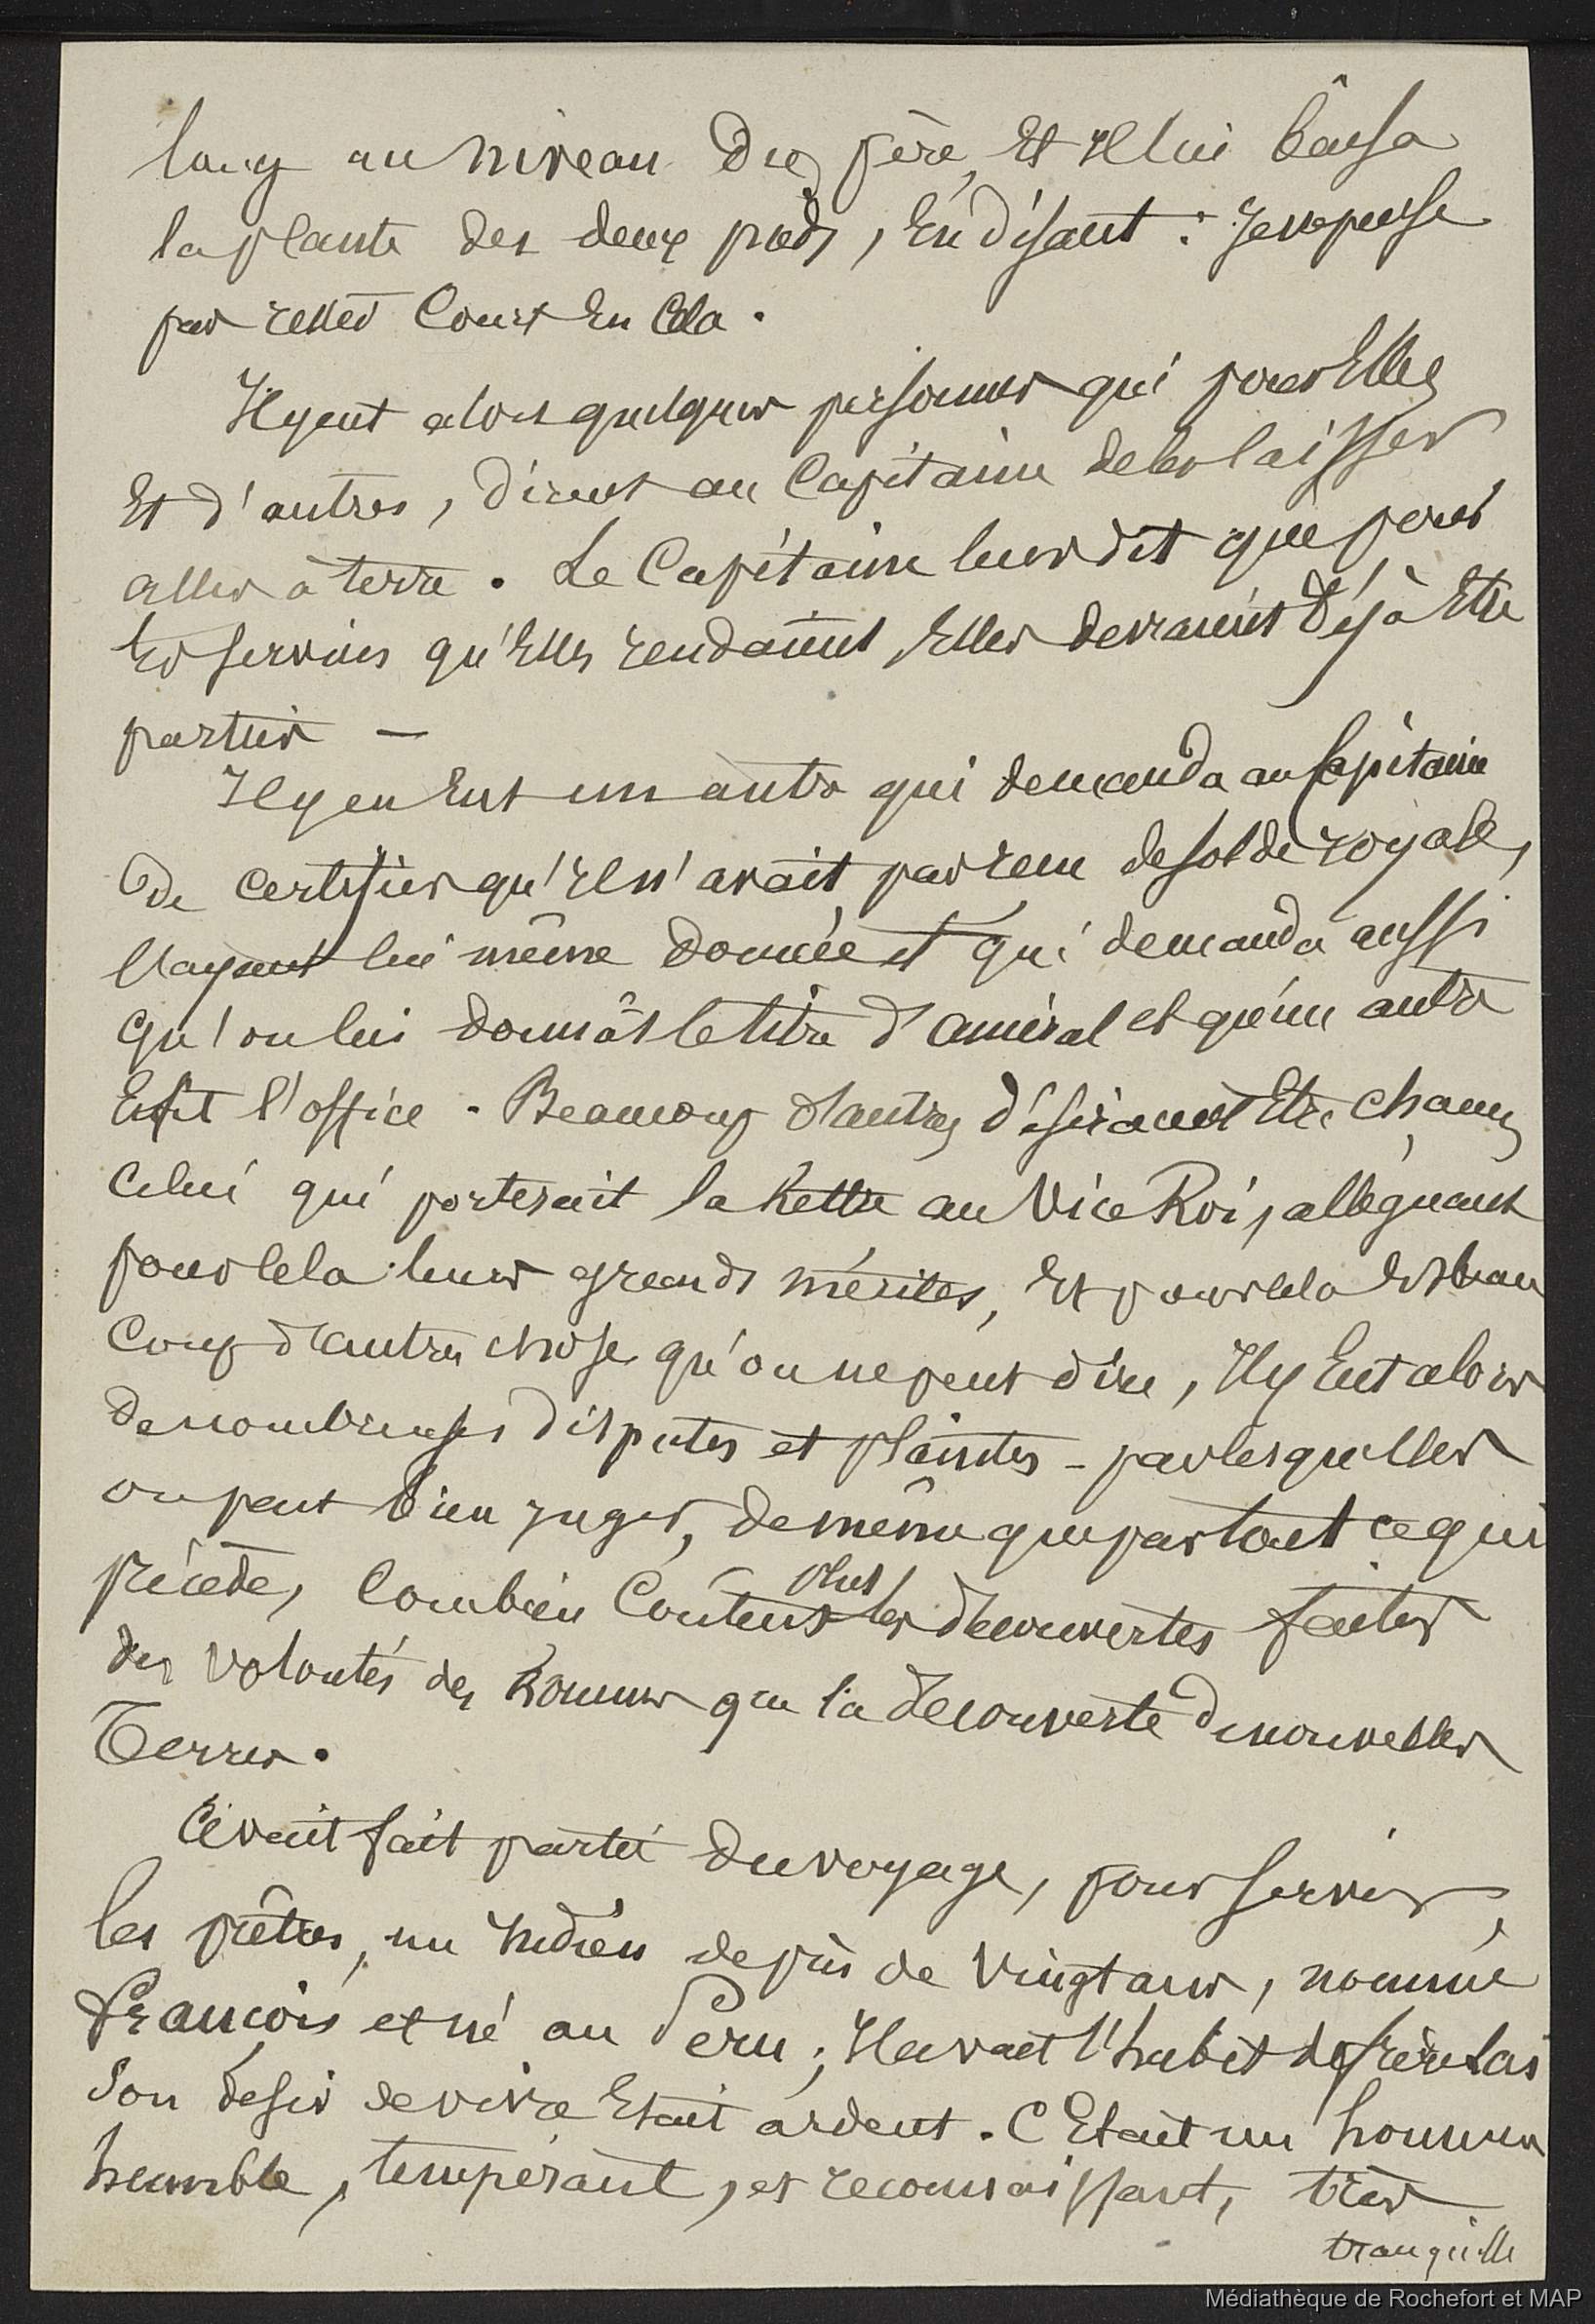 long au niveau du père, et il lui bâisa
la plante des deux pieds, en disant : Je ne puisse
pas rester court en cela.
Il y eut alors quelques personnes qui pour elles
et d'autres, dirent au Capitaine de les laisser
aller à terre. Le Capitaine leur dit que pour
les services qu'elles rendaient, elles devraient déjà être
parties —
Il y en eut un autre qui demanda au Capitaine
de certifier qu'il n'avait pas reçu de solde royale,
l'ayant lui même donnée et qui demanda aussi
qu'on lui donnât le titre d'amiral et qu'un autre
en fit l'office. Beaucoup d'autres désiraient être chacun
celui qui porterait la lettre au Vice Roi, alléguant
pour cela leurs grands mérites, et pour cela et beau
coup d'autres choses qu'on ne peut dire, Il y eut alors
de nombreuses disputes et plaintes - par lesquelles
on peut bien juger, de même que par tout ce qui
précède, combien coûtent plus les découvertes faites
des volontés des hommes que la découverte de nouvelles
Terres.
Avait fait partie du voyage, pour servir
les prêtres, un Indien de près de vingt ans, nommé
François et né au Pérou ; Il avait l'habit de frère lai
Son désir de vivre était ardent. C'était un homme
humble, tempérant, et reconnaissant, très
tranquille
Médiathèque de Rochefort et MAP